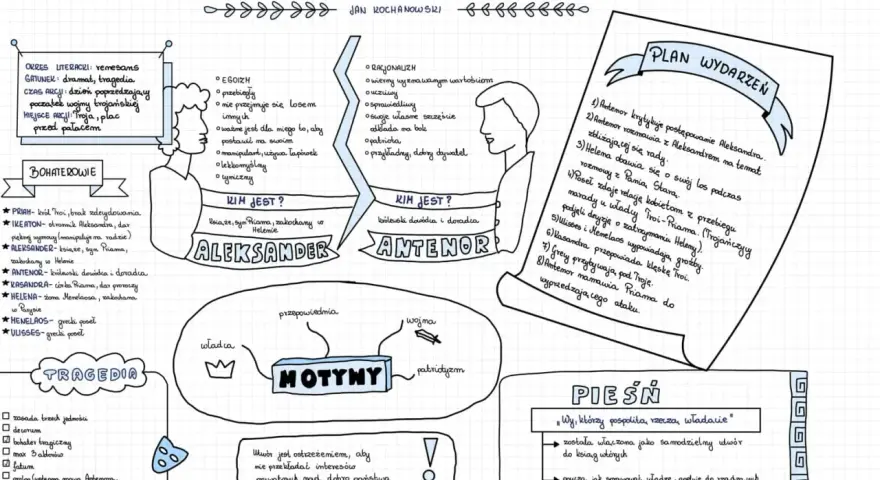 JAN KOCHANOWSKI
OKRES LITERACKI: renesans
GATUNEK: dramat, tragedia
CZAS AKCJI: dzień poprzedzający
początek wojny trojańskiej
MIEJSCE AKCJI: Troja, plac
przed pałacem
BOHATEROWIE
★ PRIAM- król Troi, brak zdecydowania
★ IKEATON- stronnik Aleksandra, dar
pięknej wymowy (manipuluje na radzie)
★ ALEKSANDER- książe, syn Priama,
zakochany w Helenie
★ ANTENOR- królewski dowódca i doradca
★ KASANDRA- córka Priama, dar proroczy
★ HELENA- żona Menelaosa, zakochana
w Parysie
★ MENELAOS- grecki poseł
★ ULISSES- grecki poseł
EGOIZM
przebiegły
nie przejmuje się losem
innych
ważne jest dla niego to, aby
postawić na swoim
manipulant, używa łapówek
lekkomyślny
cyniczny
KIM JEST?
książe, syn Priama, zakochany w
Helenie
ALEKSANDER
RACJONALIZM
wierny wyznawanym wartościom
uczciwy
sprawiedliwy
swoje własne szczęście
odkłada na bok
patriota
przykładny, dobry obywatel
KIM JEST?
królewski dowódca i doradca
ANTENOR
PLAN WYDARZEŃ
1) Antenor krytykuje postępowanie Aleksandra.
2) Antenor rozmawia z Aleksandrem na temat
zbliżającej się rady.
3) Helena obawia się o swój los podczas
rozmowy z Panią Starą.
4) Poseł zdaje relację kobietom z przebiegu
narady u władcy Troi-Priama. (Trojańczycy
podjęli decyzję o zatrzymaniu Heleny).
5) Ulisses i Menelaos wypowiadają groźby.
6) Kasandra przepowiada klęskę Troi.
7) Grecy przybywają pod Troję.
8) Antenor namawia Priama do
wyprzedzającego ataku.
MOTYWY
władca
przepowiednia
wojna
patriotyzm
TRAGEDIA
zasada trzech jedności
decorum
bohater tragiczny
max 3 aktorów
fatum
Utwór jest ostrzeżeniem, aby
nie przekładać interesów
PIEŚŃ
„Wy, którzy pospolitą rzeczą władacie"
została włączona jako samodzielny utwór
do ksiąg wtórych